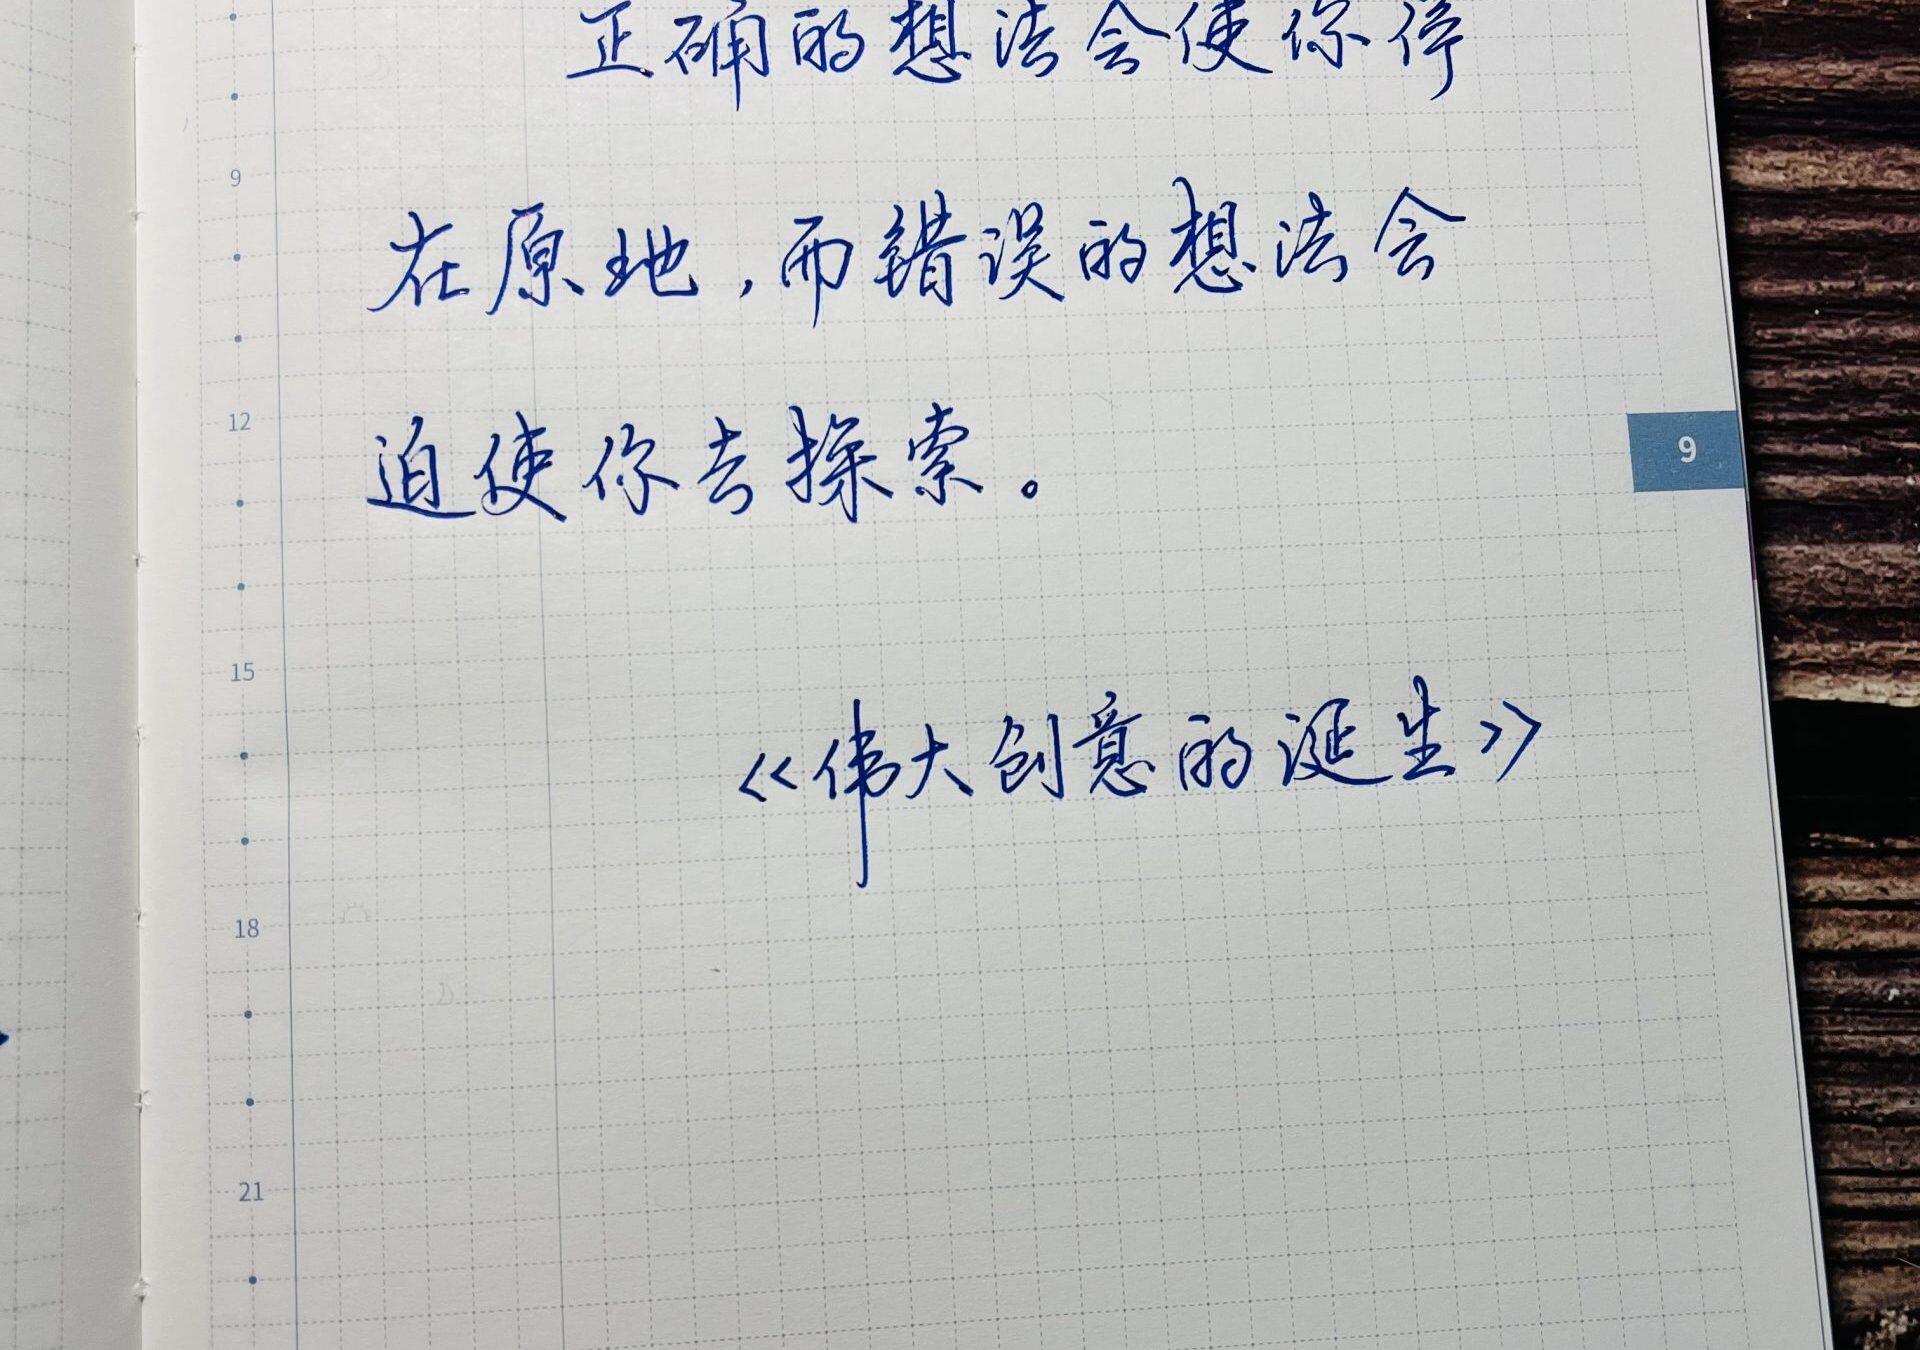 正确的想法会使你停
9
在原地，而错误的想法会
12
迫使你去探索。
9
15
《伟大创意的诞生》
18
21